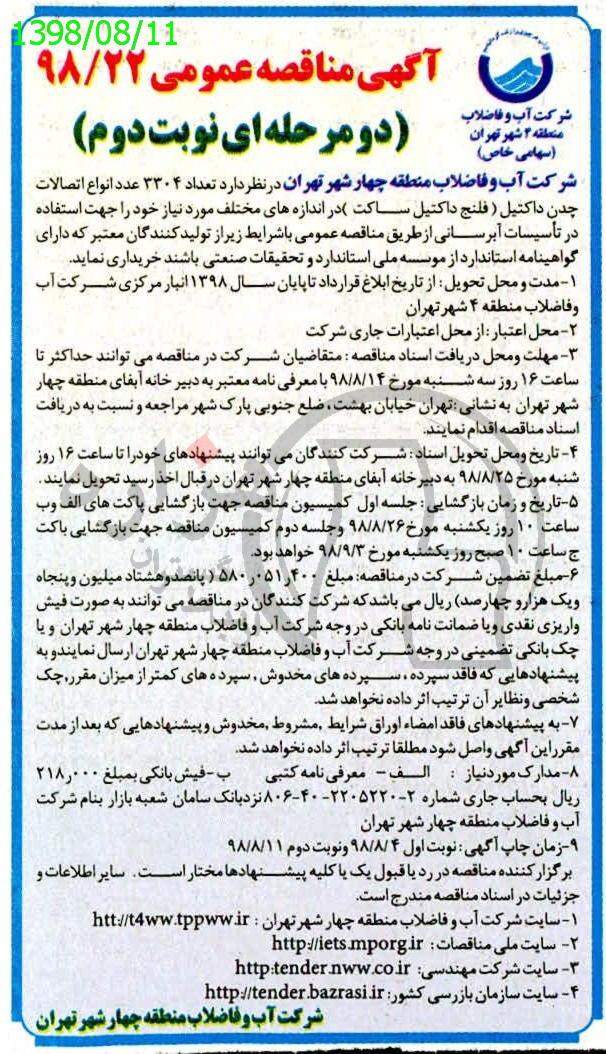 1398/08/11
آگهی مناقصه عمومی ۹۸/۲۲
(دو مرحله ای نوبت دوم)
شرکت آب و فاضلاب
منطقه ۴ شهر تهران
(سهامی خاص)
شرکت آب و فاضلاب منطقه چهار شهر تهران در نظر دارد تعداد ۳۳۰۴ عدد انواع اتصالات
چدن داکتیل (فلنج داکتیل ساکت) در اندازه های مختلف مورد نیاز خود را جهت استفاده
در تأسیسات آبرسانی از طریق مناقصه عمومی با شرایط زیر از تولید کنندگان معتبر که دارای
گواهینامه استاندارد از موسسه ملی استاندارد و تحقیقات صنعتی باشند خریداری نماید.
۱- مدت و محل تحویل: از تاریخ ابلاغ قرارداد تا پایان سال ۱۳۹۸ انبار مرکزی شرکت آب
و فاضلاب منطقه ۴ شهر تهران
۲- محل اعتبار: از محل اعتبارات جاری شرکت
۳- مهلت و محل دریافت اسناد مناقصه: متقاضیان شرکت در مناقصه می توانند حداکثر تا
ساعت ۱۶ روز سه شنبه مورخ ۹۸/۸/۱۴ با معرفی نامه معتبر به دبیر خانه آبفای منطقه چهار
شهر تهران به نشانی: تهران خیابان بهشت، ضلع جنوبی پارک شهر مراجعه و نسبت به دریافت
اسناد مناقصه اقدام نمایند.
۴- تاریخ و محل تحویل اسناد: شرکت کنندگان می توانند پیشنهادهای خود را تا ساعت ۱۶ روز
شنبه مورخ ۹۸/۸/۲۵ به دبیر خانه آبفای منطقه چهار شهر تهران در قبال اخذ رسید تحویل نمایند.
۵- تاریخ و زمان بازگشایی: جلسه اول کمیسیون مناقصه جهت بازگشایی پاکت های الف وب
ساعت ۱۰ روز یکشنبه مورخ ۹۸/۸/۲۶ و جلسه دوم کمیسیون مناقصه جهت بازگشایی باکت
ج ساعت ۱۰ صبح روز یکشنبه مورخ ۹۸/۹/۳ خواهد بود.
۶- مبلغ تضمین شرکت در مناقصه: مبلغ ۵۸۰٫۰۵۱٫۴۰۰ (پانصد و هشتاد میلیون و پنجاه
و یک هزار و چهارصد) ریال می باشد که شرکت کنندگان در مناقصه می توانند به صورت فیش
واریزی نقدی و یا ضمانت نامه بانکی در وجه شرکت آب و فاضلاب منطقه چهار شهر تهران و یا
چک بانکی تضمینی در وجه شرکت آب و فاضلاب منطقه چهار شهر تهران ارسال نمایند و به
پیشنهادهایی که فاقد سپرده، سپرده های مخدوش، سپرده های کمتر از میزان مقرر، چک
شخصی ونظایر آن ترتیب اثر داده نخواهد شد.
۷- به پیشنهادهای فاقد امضاء اوراق شرایط، مشروط، مخدوش و پیشنهادهایی که بعد از مدت
مقرر این آگهی واصل شود مطلقا ترتیب اثر داده نخواهد شد.
۸- مدارک مورد نیاز: الف- معرفی نامه کتبی ب- فیش بانکی بمبلغ ۲۱۸٫۰۰۰
ریال بحساب جاری شماره ۲-۲۲۰۵۲۲۰-۴۰-۸۰۶ نزد بانک سامان شعبه بازار بنام شرکت
آب و فاضلاب منطقه چهار شهر تهران
۹- زمان چاپ آگهی: نوبت اول ۹۸/۸/۴ و نوبت دوم ۹۸/۸/۱۱
برگزار کننده مناقصه در رد یا قبول یک یا کلیه پیشنهادها مختار است. سایر اطلاعات و
جزئیات در اسناد مناقصه مندرج است.
۱- سایت شرکت آب و فاضلاب منطقه چهار شهر تهران: htt://t4ww.tppww.ir
۲- سایت ملی مناقصات: http://iets.mporg.ir
۳- سایت شرکت مهندسی: http:tender.nww.co.ir
۴- سایت سازمان بازرسی کشور: http://tender.bazrasi.ir
شرکت آب و فاضلاب منطقه چهار شهر تهران